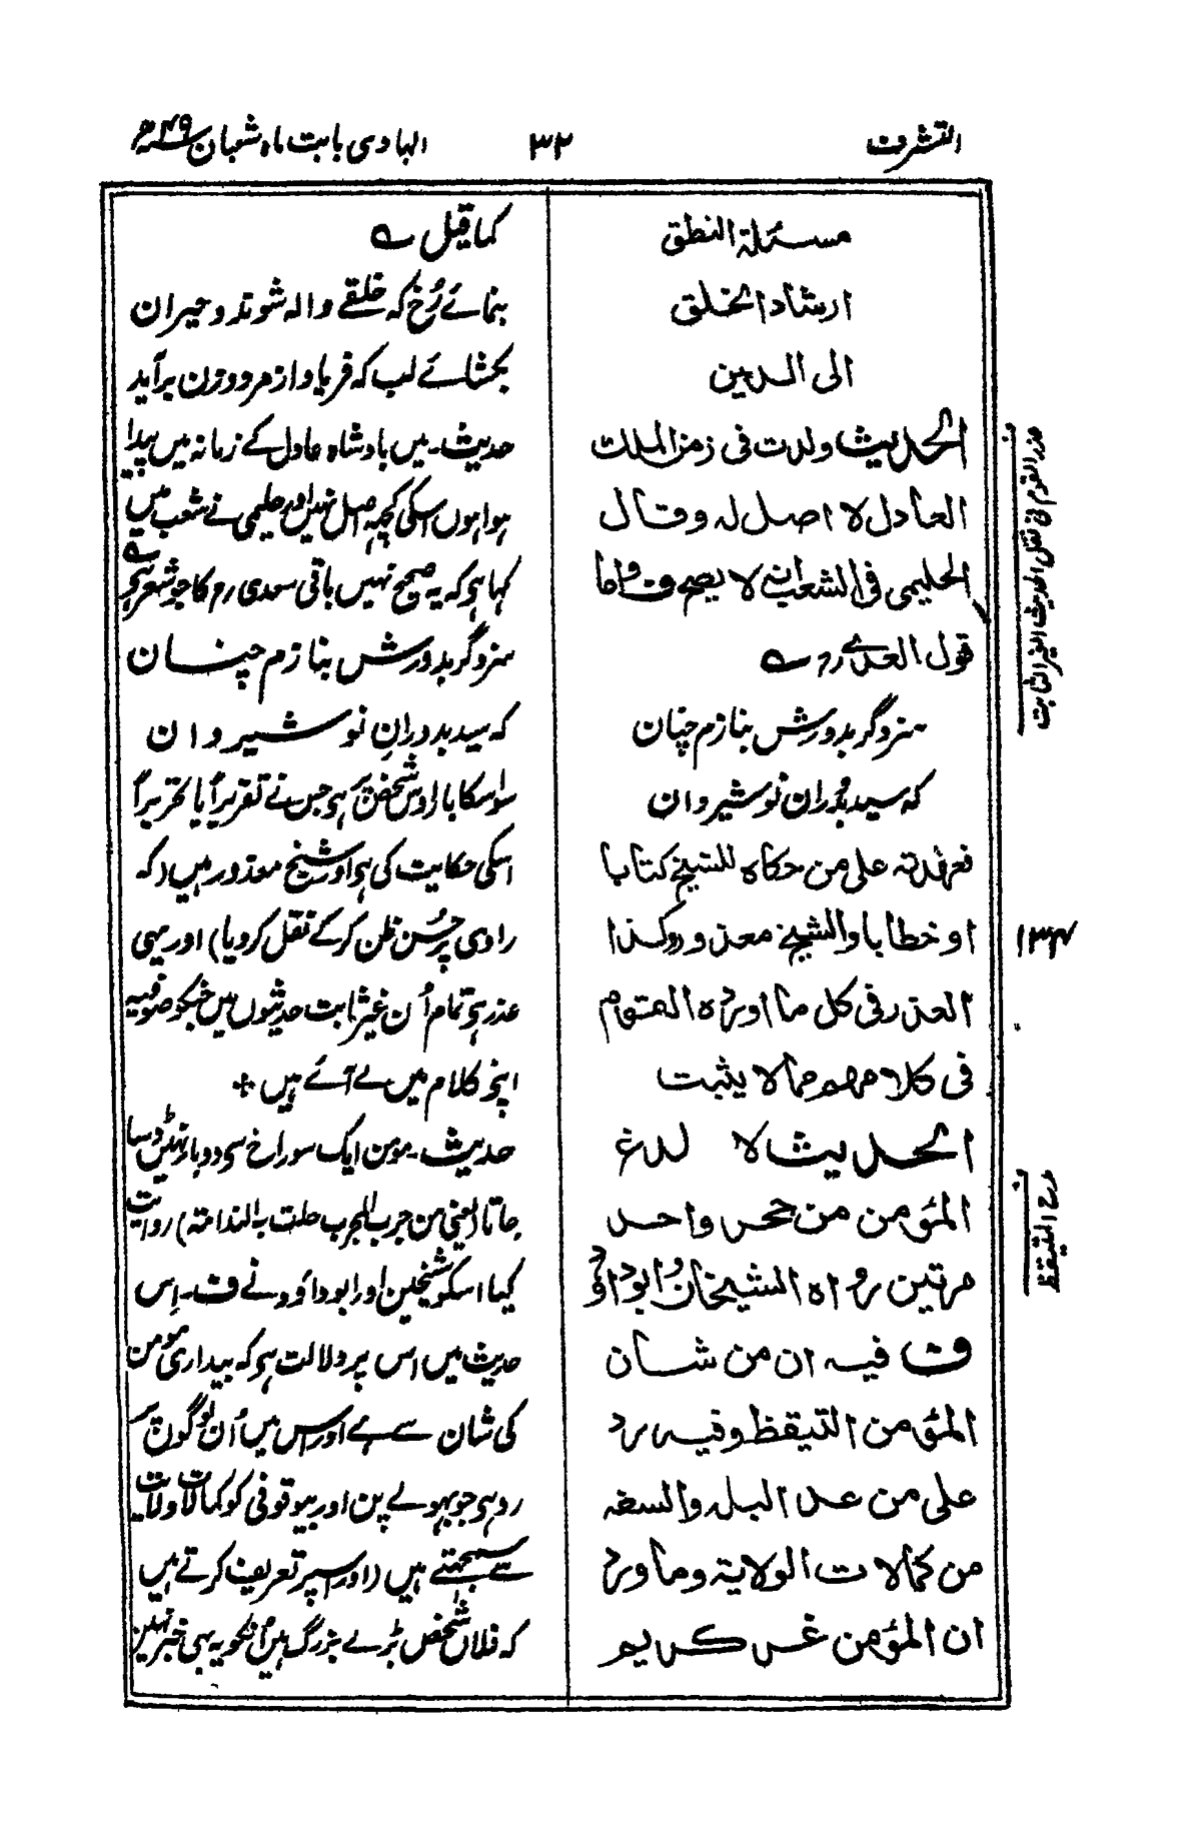 التشرف
٣٢
الہادی بابت ماہ شعبان ۴۹ھ
مسئلۃ النطق
ارشاد الخلق
الی الدین
الحدیث ولدت فی زمن الملک
العادل لا اصل لہ وقال
الحلیمی فی الشعب انہ لا یصح ف واما
قول السعدی رہ ے
سزد گر بدورش بنازم چنان
کہ سید بدوران نوشیروان
فعہدتہ علی من حکاہ للشیخ کتابا
او خطابا والشیخ معذور وکذا
العذر فی کل ما اوردہ القوم
فی کلامہم مما لا یثبت
الحدیث لا لدغ
المؤمن من جحر واحد
مرتین رواہ الشیخان وابوداؤد
ف فیہ ان من شان
المؤمن التیقظ وفیہ رد
علی من عد البلہ والسفہ
من کمالات الولایۃ وما ورد
ان المؤمن غر کریم
کما قیل ے
بنمائے رُخ کہ خلقے والہ شوند و حیران
بکشائے لب کہ فریاد از مرد و زن برآید
حدیث۔ میں بادشاہ عادل کے زمانہ میں پیدا
ہوا ہوں اسکی کچھ اصل نہیں اور حلیمی نے شعب میں
کہا ہو کہ یہ صحیح نہیں باقی سعدی رح کا جو شعر ہی ے
سزد گر بدورش بنازم چنان
کہ سید بدورانِ نوشیروان
سو اسکا بار اوس شخص پر ہو جس نے تقریراً یا تحریراً
اسکی حکایت کی ہو اور شیخ معذور ہیں (کہ
راوی پر حُسن ظن کرکے نقل کردیا) اور یہی
عذر ہو تمام اُن غیر ثابت حدیثوں میں جنکو صوفیہ
اپنے کلام میں لے آئے ہیں +
حدیث۔ مومن ایک سوراخ سے دوبار نہیں ڈسا
جاتا (یعنی من جرب المجرب حلت بہ الندامتہ) روایت
کیا اسکو شیخین اور ابوداؤد نے ف۔ اِس
حدیث میں اس پر دلالت ہو کہ بیداری مومن
کی شان سے ہے اور اس میں اُن لوگوں پر
رد ہو جو بہولے پن اور بیوقوفی کو کمالات ولایت
سے سمجہتے ہیں (اور اسپر تعریف کرتے ہیں
کہ فلاں شخص بڑے بزرگ ہیں اُنکو یہ بہی خبر نہیں
عذر القوم فی نقل الحدیث الغیر الثابت
۱۳۴
مدح التیقظ